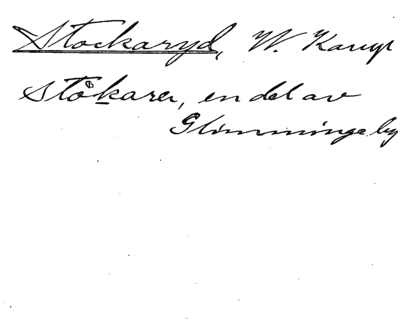 Stockaryd, W. Karup
Stôkarer, en del av
Glimminge by